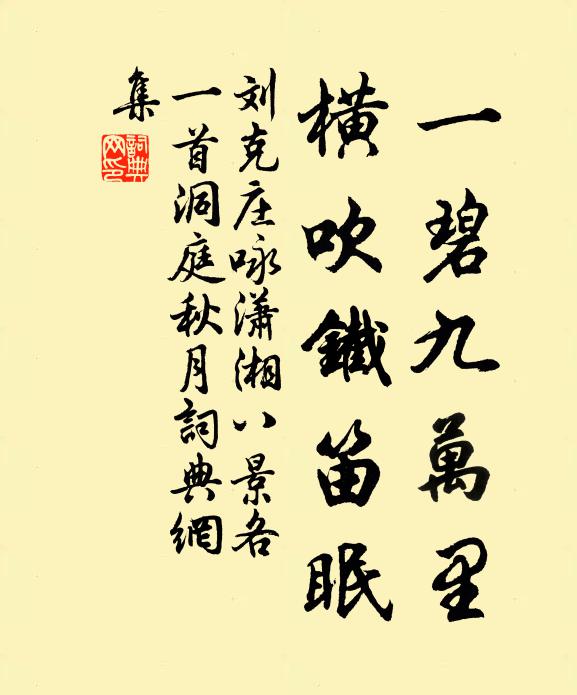 一碧九萬里
橫吹鐵笛眠
刘克庄咏瀟湘八景各
一首洞庭秋月詞典網
集
詞典網印